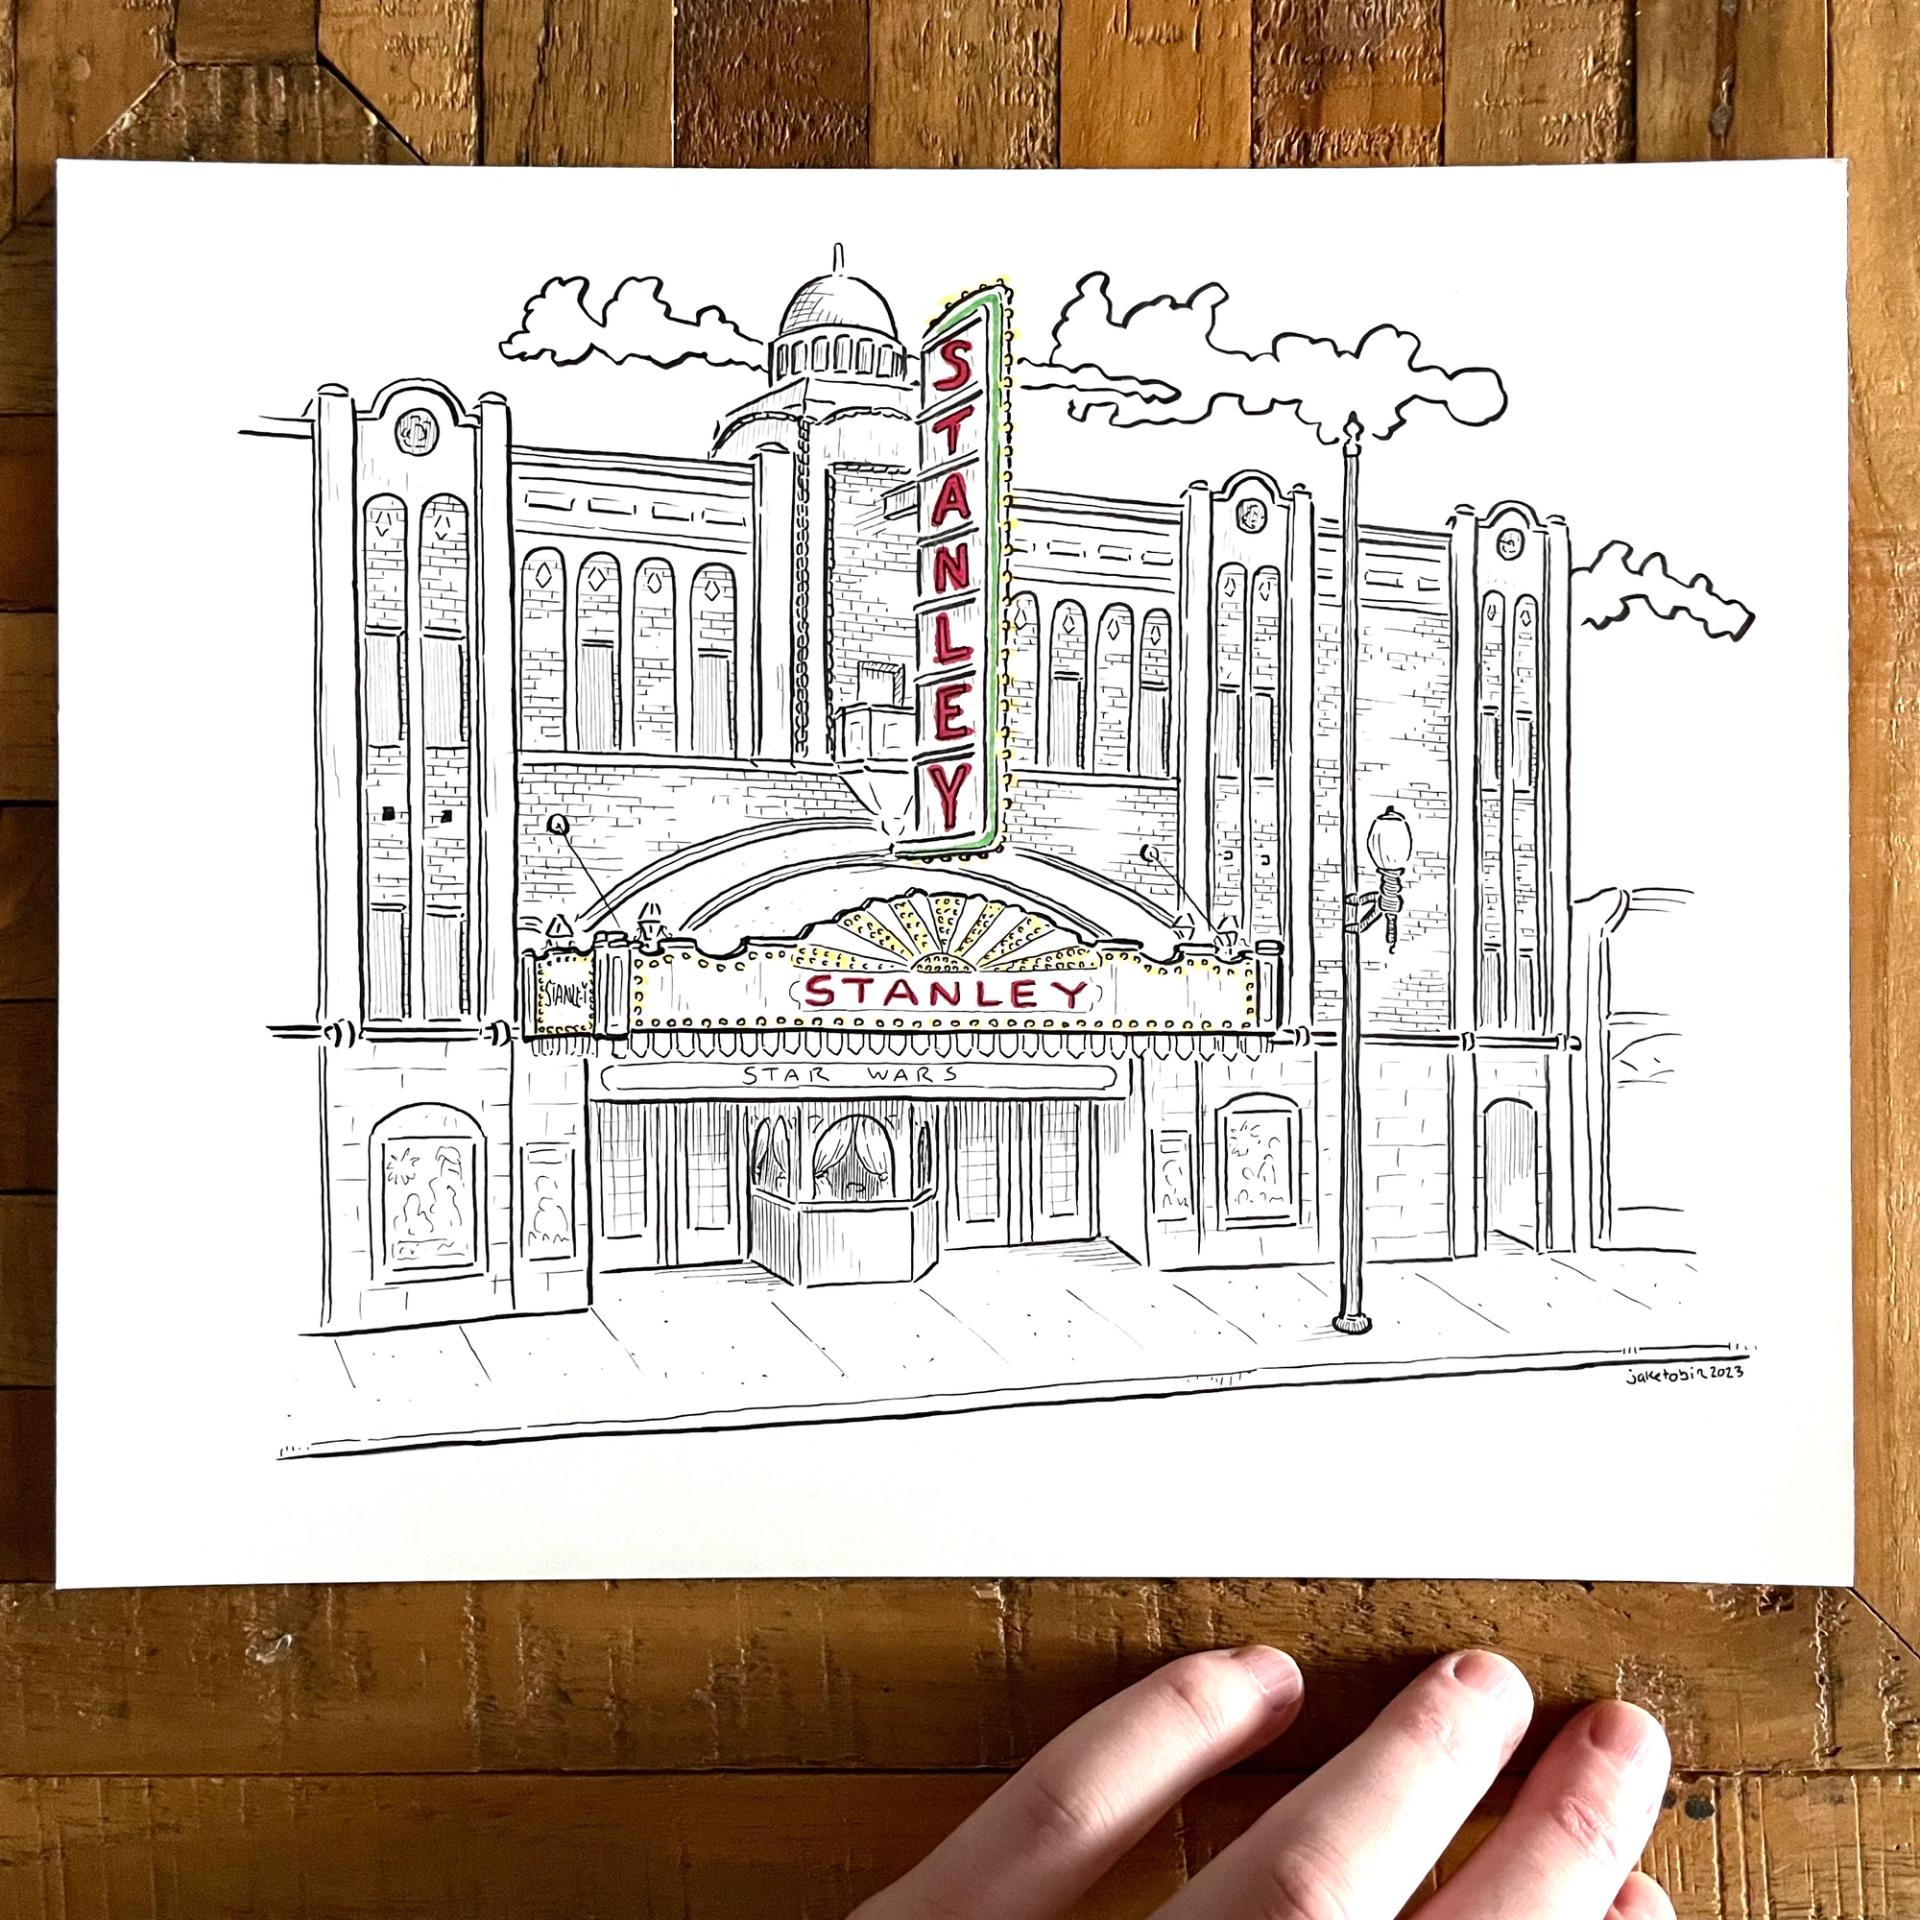 STANLEY
STANLEY
STANLEY
STAR WARS
jaketobin2023